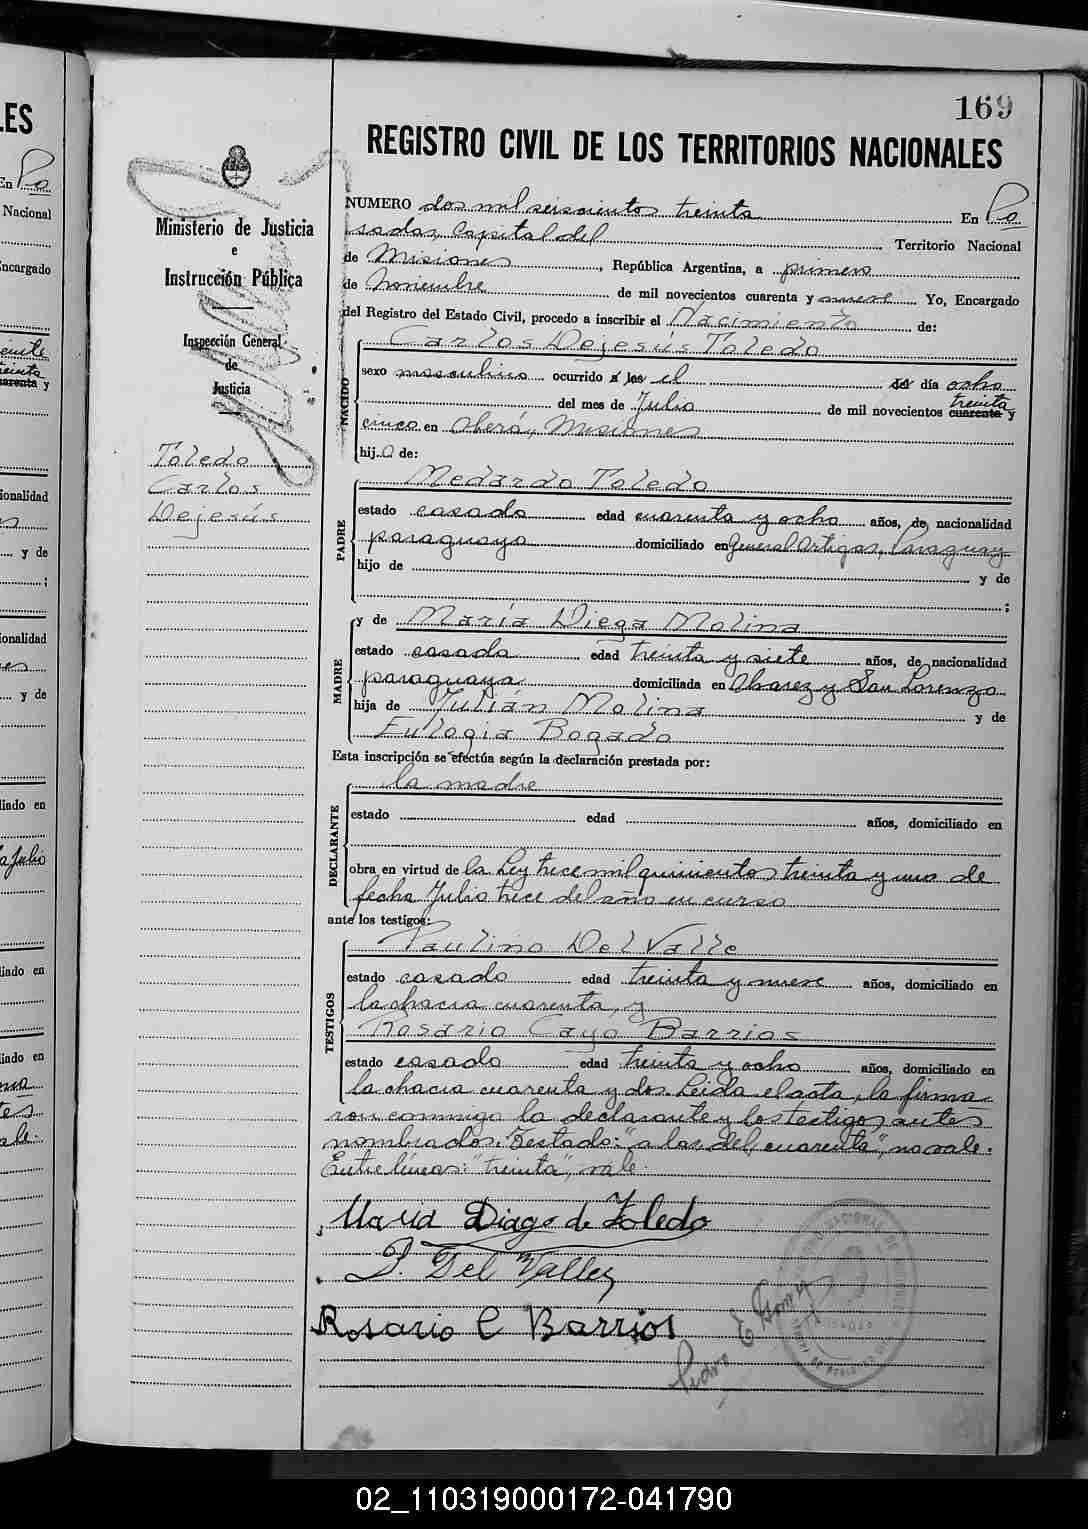 169
REGISTRO CIVIL DE LOS TERRITORIOS NACIONALES
Ministerio de Justicia
e
Instrucción Pública
Inspección General
de
Justicia
Toledo
Carlos
Dejesús
NUMERO dos mil seiscientos treinta En Po
sadas, Capital del Territorio Nacional
de Misiones, República Argentina, a primero
de Noviembre de mil novecientos cuarenta y nueve Yo, Encargado
del Registro del Estado Civil, procedo a inscribir el Nacimiento de:
Carlos Dejesús Toledo
NACIDO
sexo masculino ocurrido a las el del día ocho
treinta
del mes de Julio de mil novecientos cuarenta y
cinco en Oberá, Misiones
hijo de:
Medardo Toledo
PADRE
estado casado edad cuarenta y ocho años, de nacionalidad
paraguaya domiciliado en General Artigas, Paraguay
hijo de y de
;
y de María Diega Molina
MADRE
estado casada edad treinta y siete años, de nacionalidad
paraguaya domiciliada en Chavez y San Lorenzo
hija de Julián Molina y de
Eulogia Bogado
Esta inscripción se efectúa según la declaración prestada por:
la madre
DECLARANTE
estado edad años, domiciliado en
obra en virtud de la Ley trece mil quinientos treinta y uno de
fecha Julio trece del año en curso
ante los testigos:
Paulino Del Valle
TESTIGOS
estado casado edad treinta y nueve años, domiciliado en
la chacra cuarenta, y
Rosario Cayo Barrios
estado casado edad treinta y ocho años, domiciliado en
la chacra cuarenta y dos. Leida el acta, la firma
ron conmigo la declarante y los testigos antes
nombrados. Testado: "a las, del, cuarenta", no vale.
Entre líneas: "treinta", vale.
Maria Diago de Toledo
P. Del Valle
Rosario C Barrios
Pedro E
02_110319000172-041790